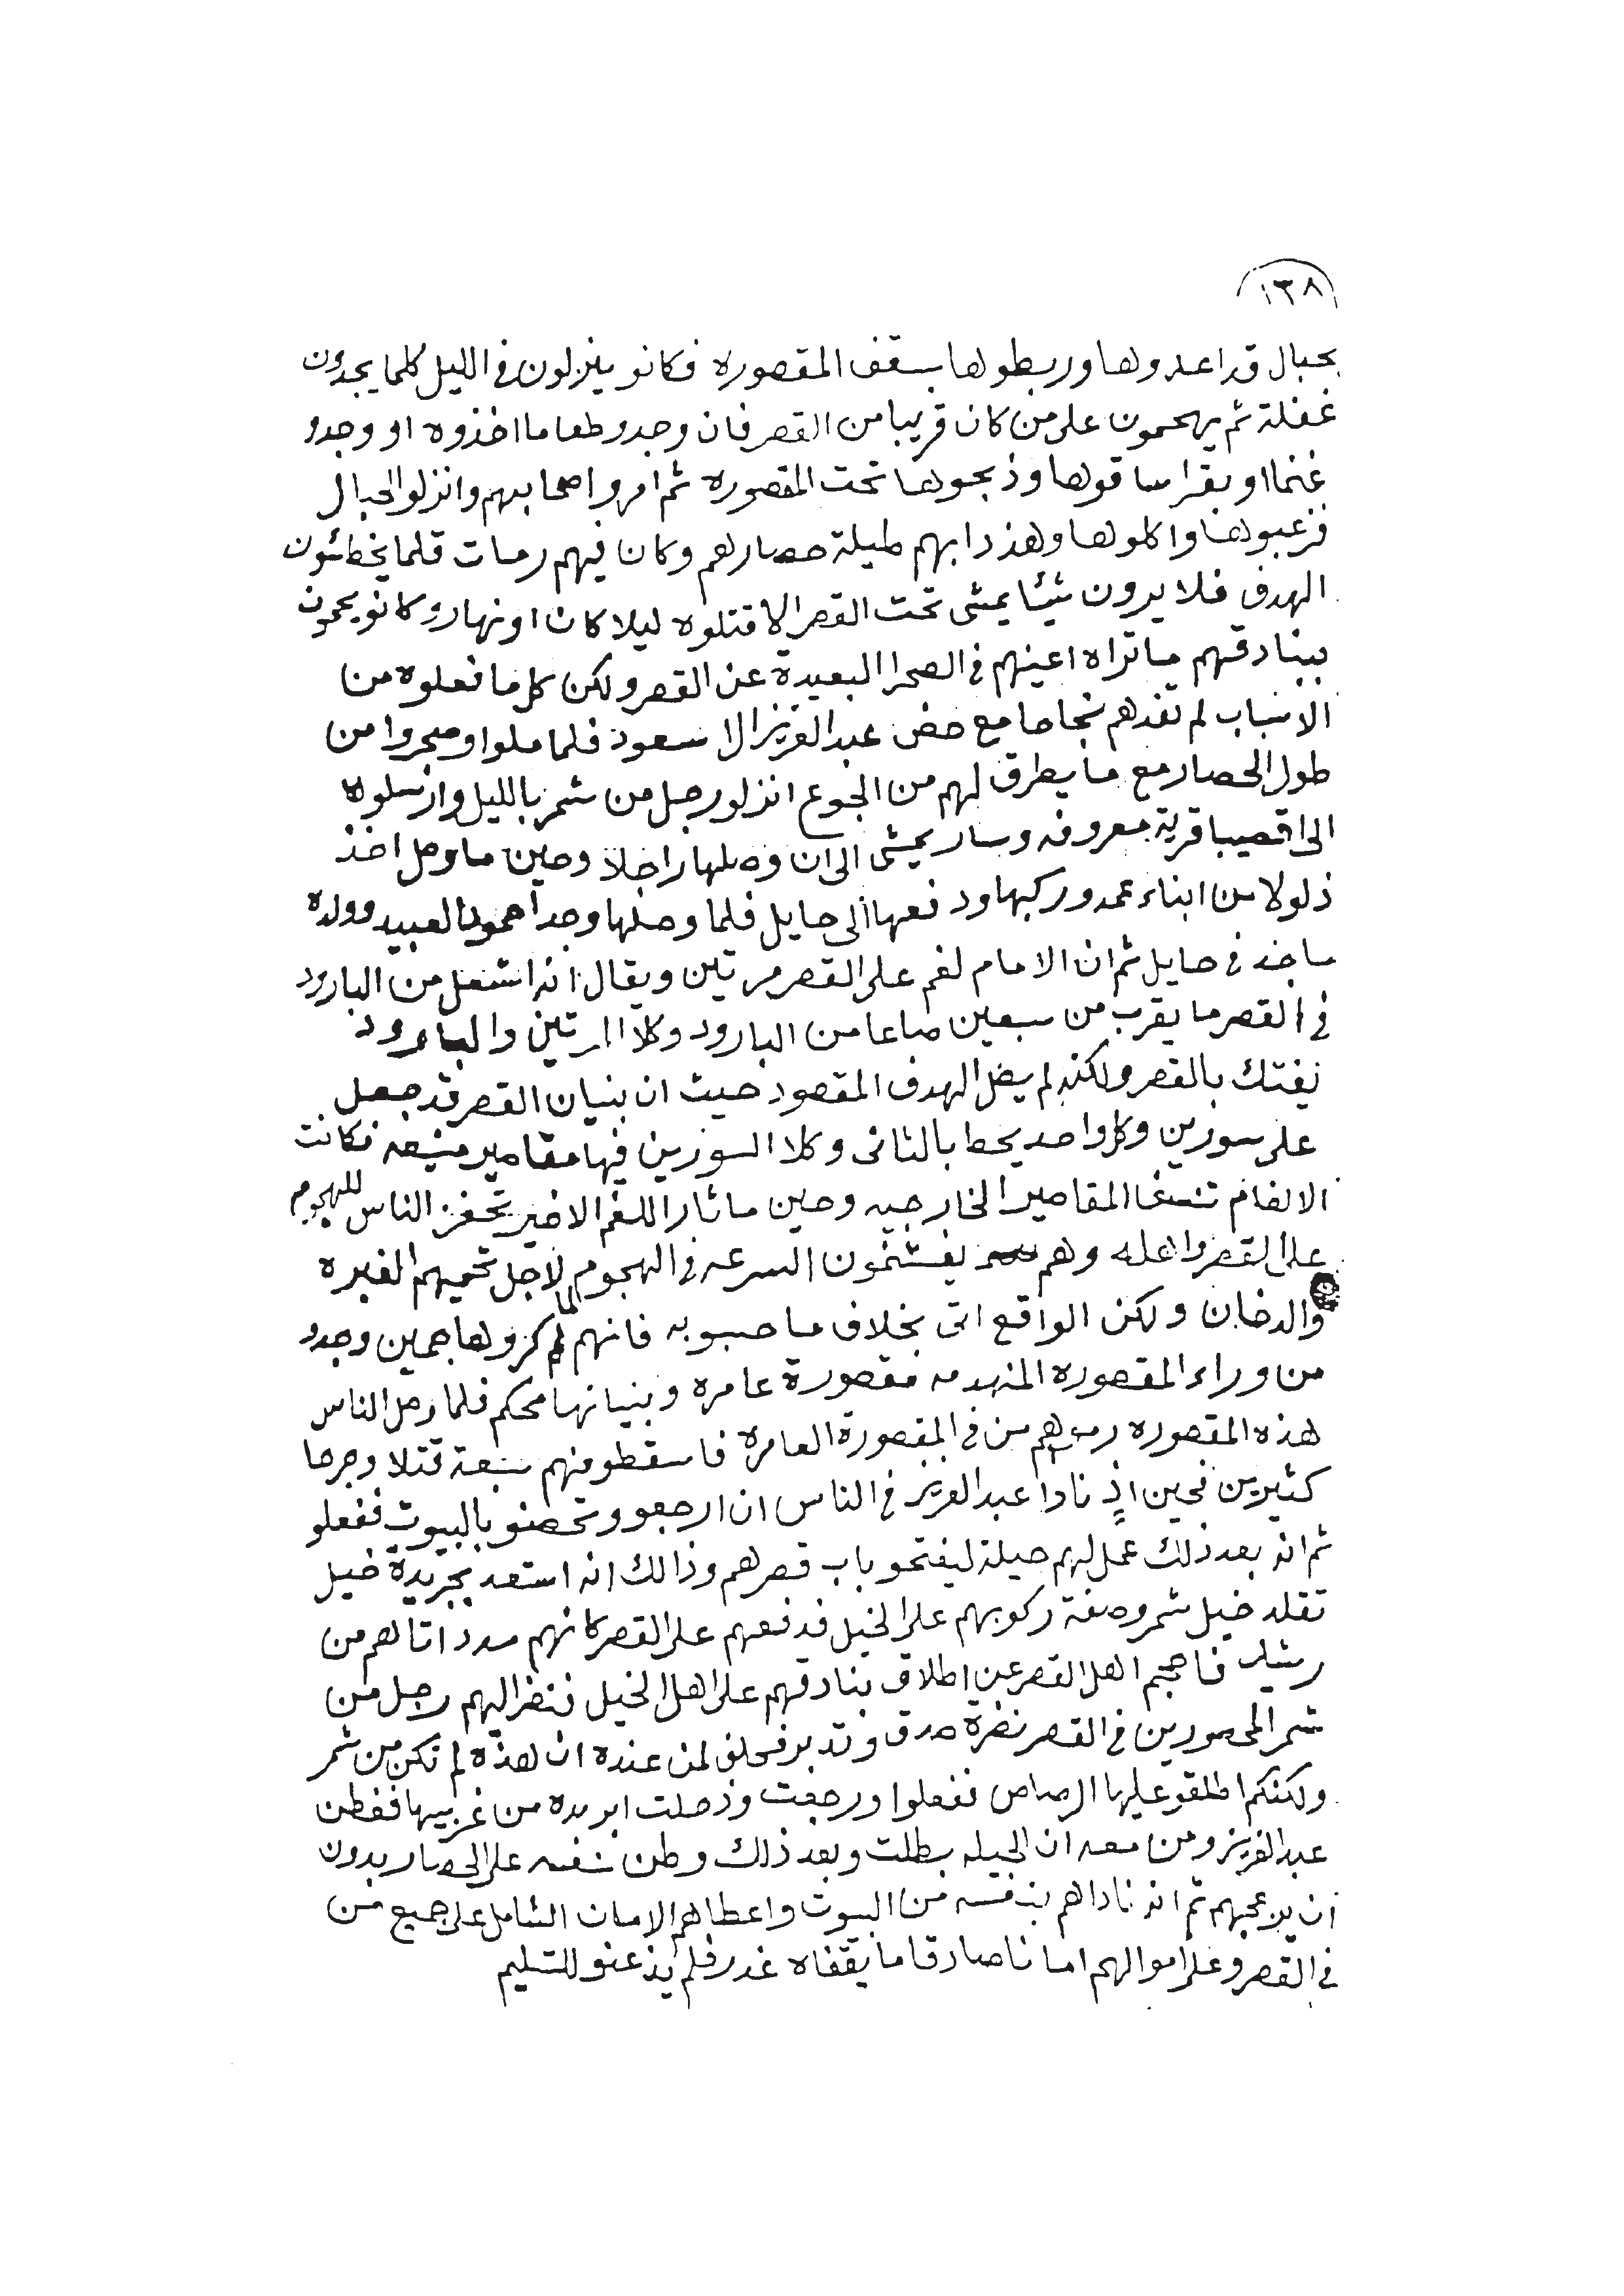 ١٣٨
بحبال قد اعدوها وربطوها بسقف المقصوره فكانو ينزلون في الليل كلما يجدون
غفلة ثم يهجمون على من كان قريبا من القصر فان وجدو طعاما اخذوه او وجدو
غنما او بقرا ساقوها وذبحوها تحت المقصوره ثم امرو اصحابهم وانزلو الحبال
فزعبوها واكلوها وهذ دابهم طيلة حصارهم وكان فيهم رمات قلما يخطئون
الهدف فلا يرون شيئا يمشي تحت القصر الا قتلوه ليلا كان او نهار وكانو يحمون
ببنادقهم ما تراه اعينهم في الصحرا البعيدة عن القصر ولكن كل ما فعلوه من
الاسباب لم تفدهم نجاحا مع حض عبد العزيز ال سعود فلما ملوا وضجروا من
طول الحصار مع ما يطرق لهم من الجوع انزلو رجل من شمر بالليل وارسلوه
الى اقصيبا قرية معروفه وسار يمشي الى ان وصلها راجلا وحين ما وصل اخذ
ذلولا من ابناء عمه وركبها ودفعها الى حايل فلما وصلها وجد احمود العبيد وولده
ماجد في حايل ثم ان الامام لغم على القصر مرتين ويقال انه اشتعل من البارود
في القصر ما يقرب من سبعين صاعا من البارود وكلا المرتين والبارود
يفتك بالقصر ولكنه لم يصل الهدف المقصود حيث ان بنيان القصر قد جعل
على سورين وكل واحد يحط بالثاني وكلا السورين فيها مقاصير منيعه فكانت
الالغام تنسغ المقاصير الخارجيه وحين ما ثار اللغم الاخير تحفز الناس للهجوم
على القصر واهله وهم يغتنمون السرعه في الهجوم لاجل تحميهم الغبره
والدخان ولكن الواقع اتى بخلاف ما حسبو به فانهم لما كزو هاجمين وجدو
من وراء المقصوره المنهدمه مقصورة عامره وبنيانها محكم فلما وصل الناس
هذه المقصوره رموهم من في المقصورة العامرة فاسقطو منهم سبعة قتلا وجرحا
كثيرين فحين اذٍ نادا عبد العزيز في الناس ان ارجعو وتحصنو بالبيوت ففعلو
ثم انه بعد ذلك عمل لهم حيلة ليفتحو باب قصرهم وذالك انه استعد بجريدة خيل
تقلد خيل شمر وصفة ركوبهم على الخيل فدفعهم على القصر كانهم مدد اتا لهم من
رشيد فاحجم اهل القصر عن اطلاق بنادقهم على اهل الخيل فنضر اليهم رجل من
شمر المحصورين في القصر نضرة صدق وتدبر فحلف لمن عنده ان هذه لم تكن من شمر
ولكنكم اطلقو عليها الرصاص ففعلوا ورجعت ودخلت ابريده من غربيها ففطن
عبد العزيز ومن معه ان الحيله بطلت وبعد ذلك وطن نفسه على الحصار بدون
ان يزعجهم ثم انه ناداهم بنفسه من البيوت واعطاهم الامان الشامل على جميع من
في القصر وعلى اموالهم امانا صادقا ما يقفاه غدر فلم يذعنو للتسليم